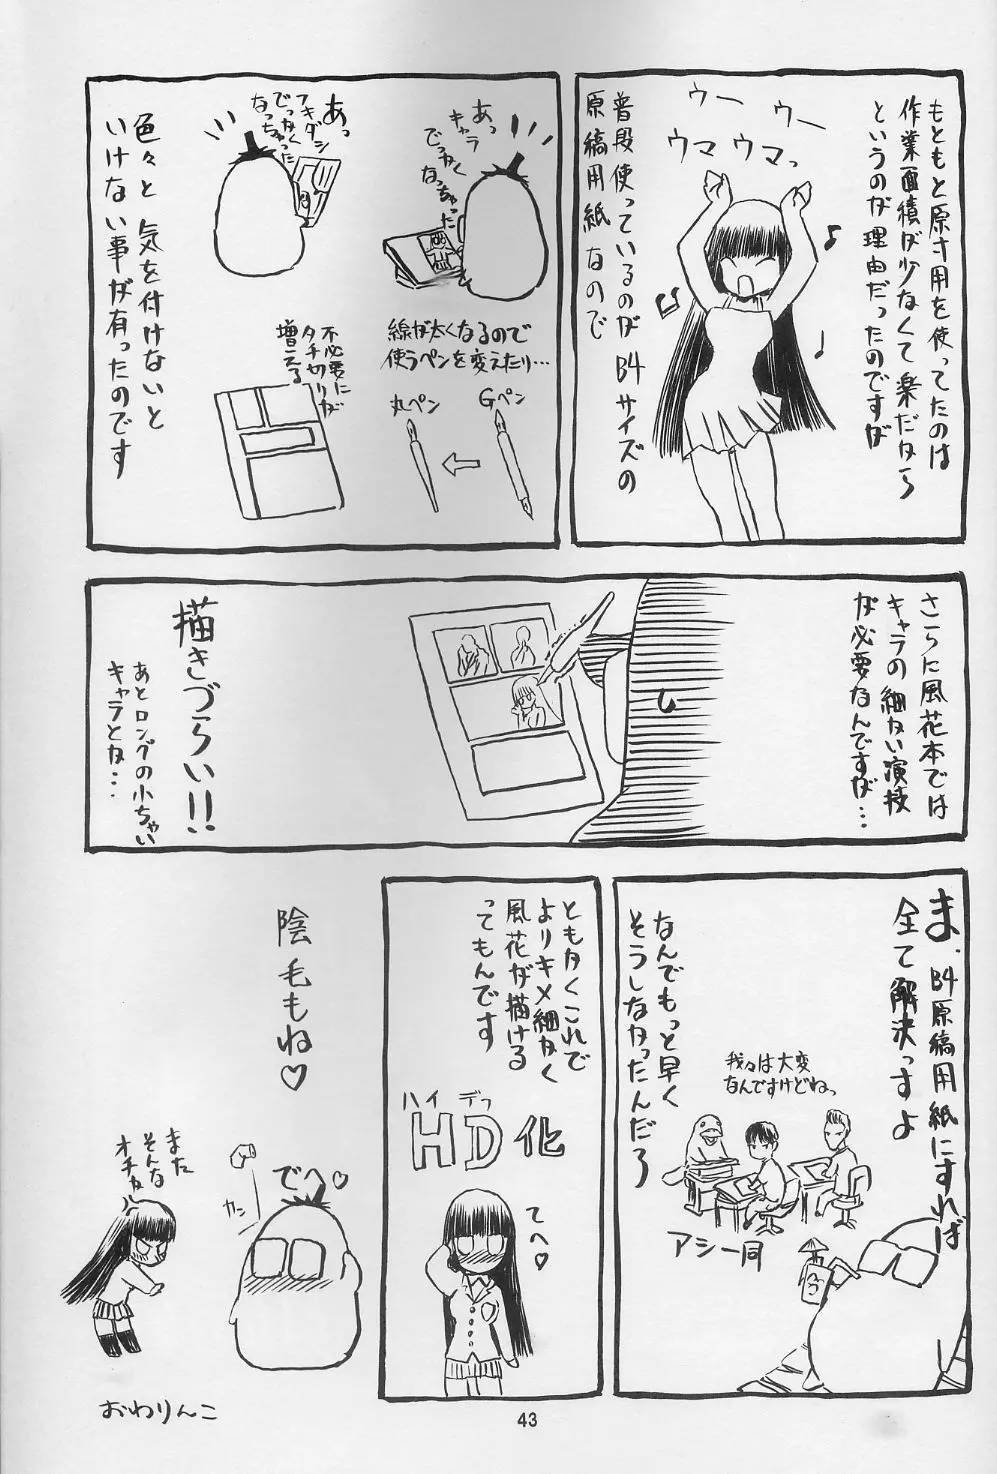 もともと原寸用を使ってたのは
作業面積が少なくて楽だから
というのが理由だったのですが
ウー
ウー
ウマウマっ
普段使っているのがB4サイズの
原稿用紙なので
あっ
キャラ
でっかく
なっちゃった
あっ
フキダシ
でっかく
なっちゃった
線が太くなるので
使うペンを変えたり…
Gペン
丸ペン
不必要に
タチ切りが
増える
色々と気を付けないと
いけない事が有ったのです
さらに風花本では
キャラの細かい演技
が必要なんですが…
描きづらい!!
あとロングの小ちゃい
キャラとか…
ま、B4原稿用紙にすれば
全て解決っすよ
我々は大変
なんですけどねっ
アシ一同
なんでもっと早く
そうしなかったんだろ
ともかくこれで
よりキメ細かく
風花が描ける
ってもんです
ハイ デフ
HD化
てへ♡
陰毛もね♡
でへ♡
カン
また
そんな
オチか
おわりんこ
43